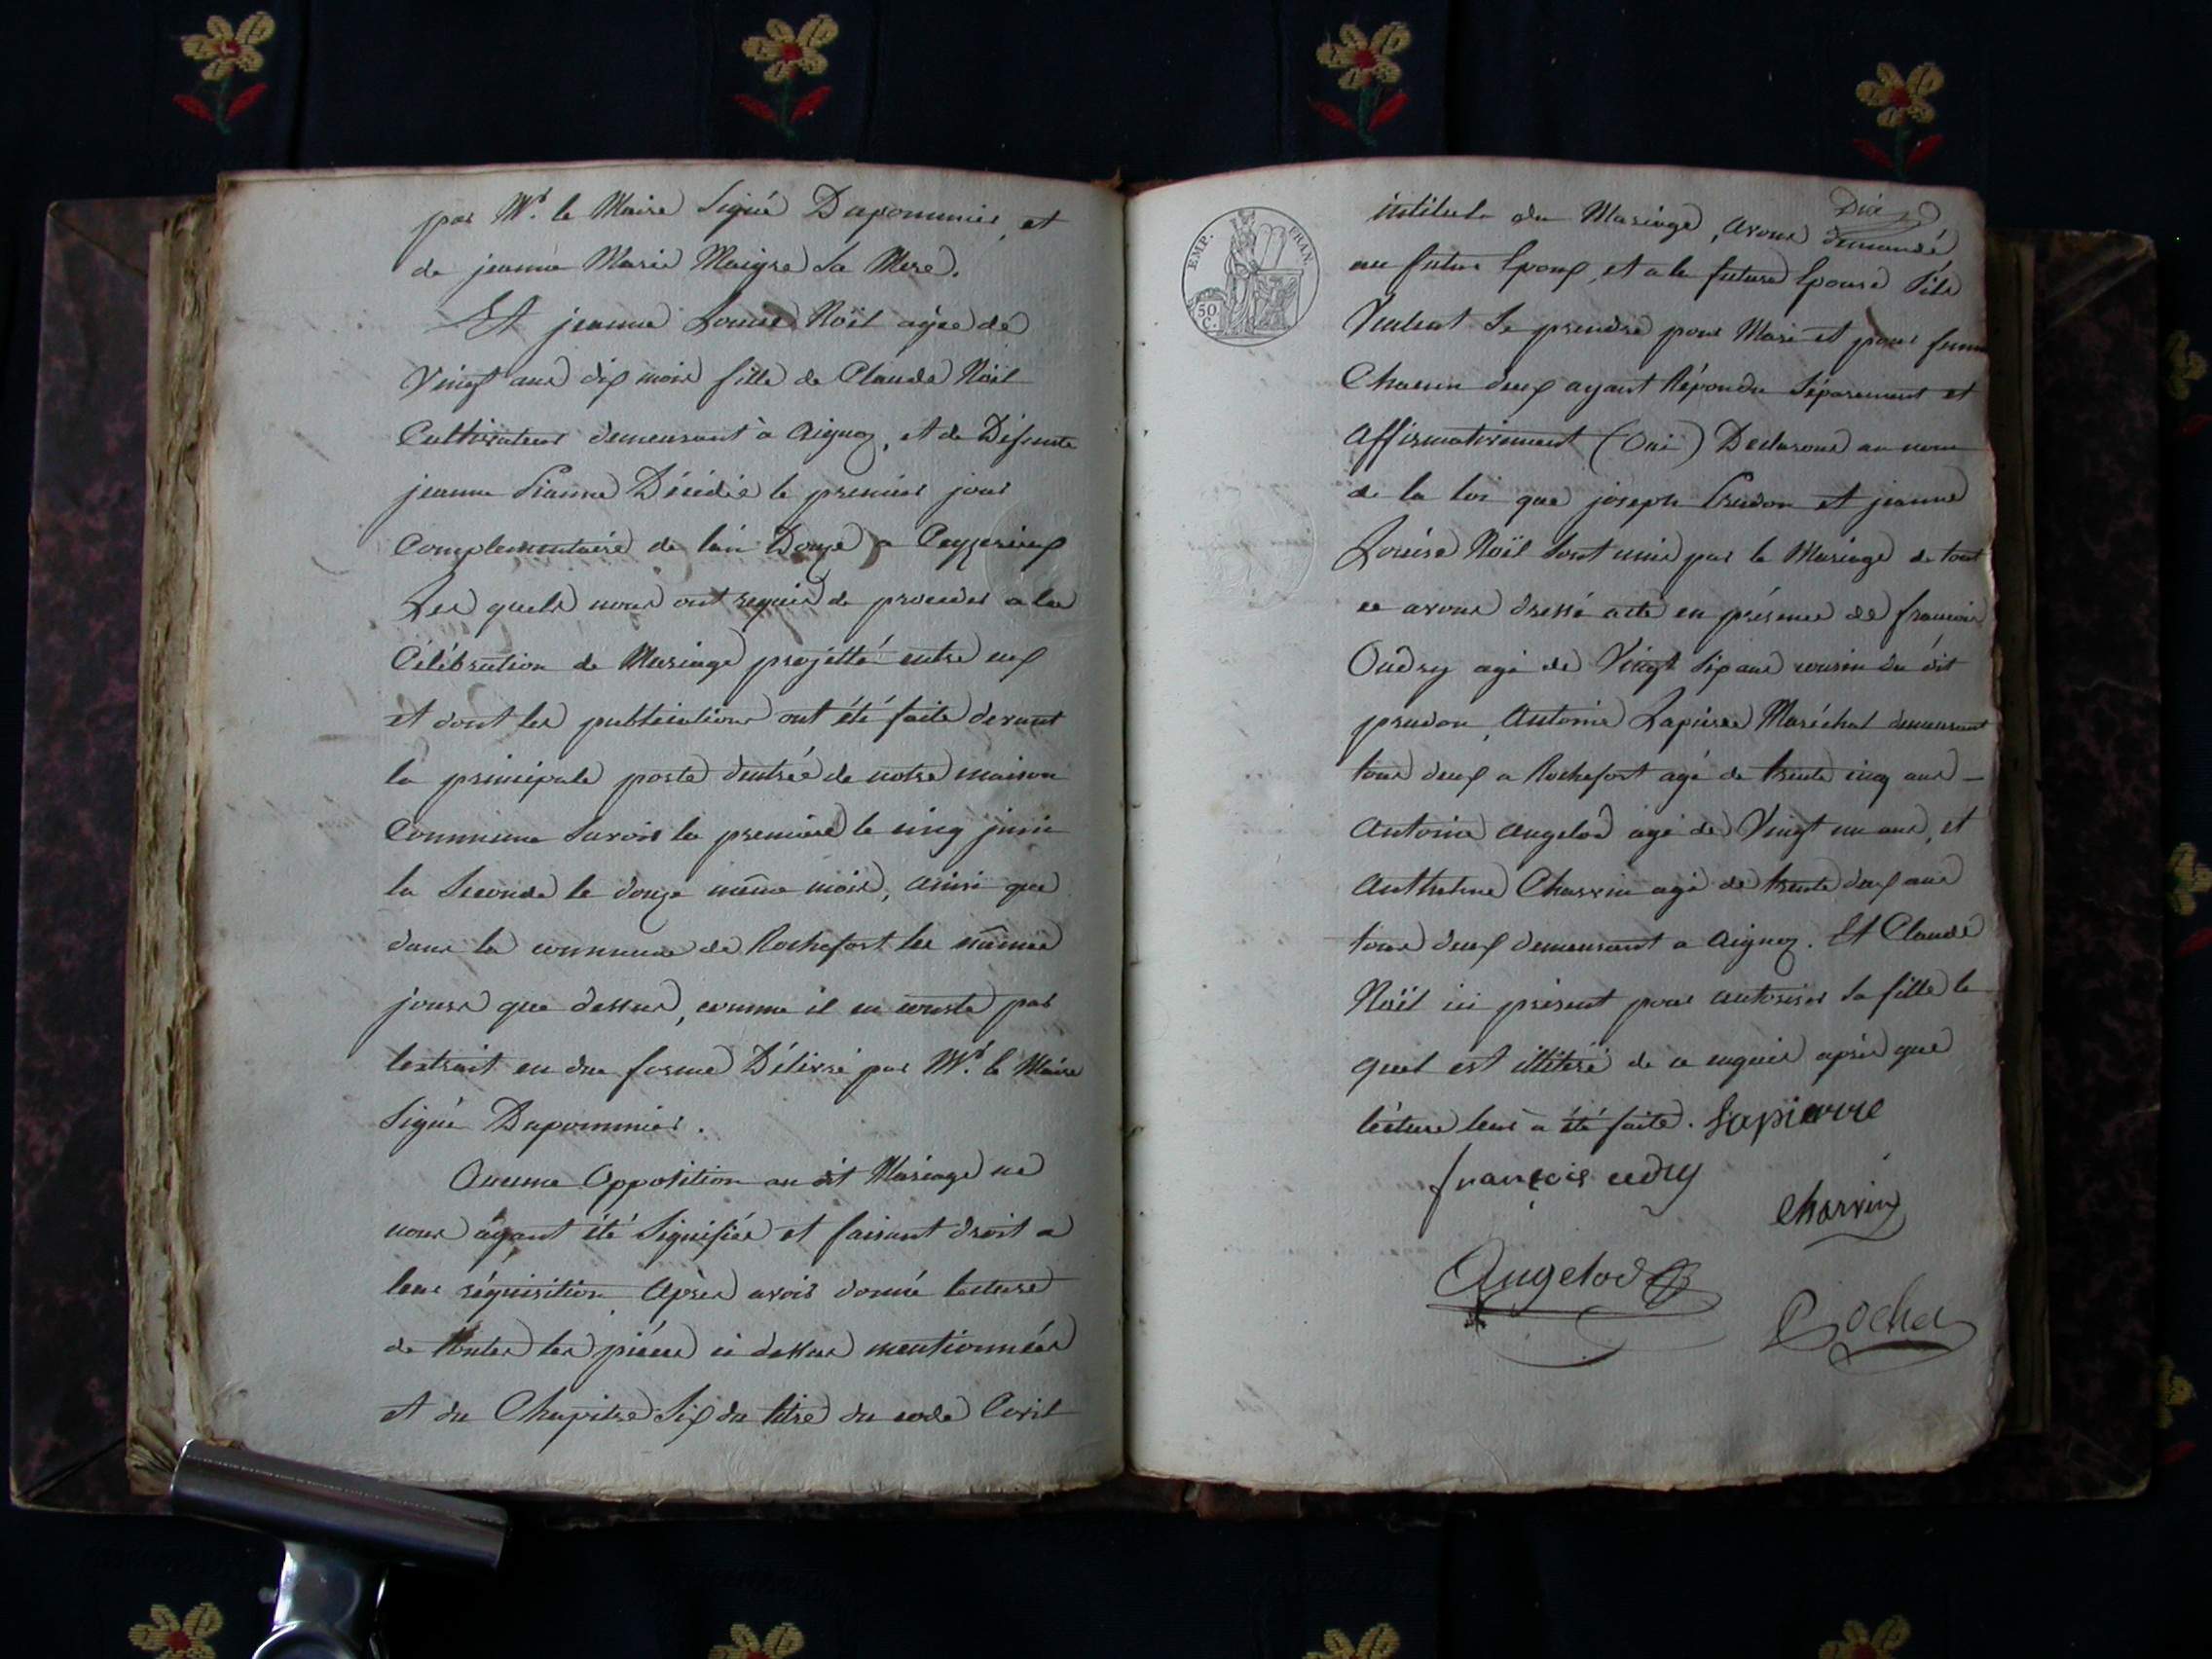 par Mr. le Maire Signé Dupommier, et
de jeanne Marie Maigre Sa Mere.
Et jeanne Louise Noël agée de
Vingt ans dix mois fille de Claude Noël
Cultivateur demeurant à Aignoz, et de Defunte
jeanne Décédée le premier jour
Complementaire de l'an Douze a Ceyzerieux
Les quels nous ont requis de proceder a la
Célébration de Mariage projetté entre eux
et dont les publications ont été faite devant
la principale porte d'entrée de notre maison
Commune Savoir la premiere le cinq juin
la Seconde le douze même mois, ainsi que
dans la commune de Rochefort les mêmes
jours que dessus, comme il en conste par
lextrait en due forme Délivré par Mr. le Maire
Signé Dupommier.
Aucune Opposition au dit Mariage ne
nous ayant été Signifiée et faisant droit a
leur réquisition, Après avoir donné lecture
de toutes les piéces ci dessus mentionnées
et du Chapitre Six du titre du code Civil
Dix
EMP. FRAN.
50 C.
intitulé du Mariage, avons demandé
au futur Epoux, et a la future Epouse S'ils
Veulent Se prendre pour Mari et pour femme
Chacun deux ayant Répondu Séparement et
Affirmativement (Oui) Declarons au nom
de la loi que joseph Prudon et jeanne
Louise Noël Sont unis par le Mariage de tout
ce avons dressé acte en présence de francois
Oudry agé de Vingt Six ans cousin du dit
prudon, Antoine Lapierre Maréchal demeurant
tous deux a Rochefort agé de trente cinq ans -
Antoine Angelod agé de Vingt un ans, et
Anthelme Charvin agé de trente deux ans
tous deux demeurant a Aignoz. Et Claude
Noël ici présent pour autoriser Sa fille le
quel est illitéré de ce enquis après que
lécture leur a été faite. Lapierre
françois udry
Charvin
Angelod
Rochet